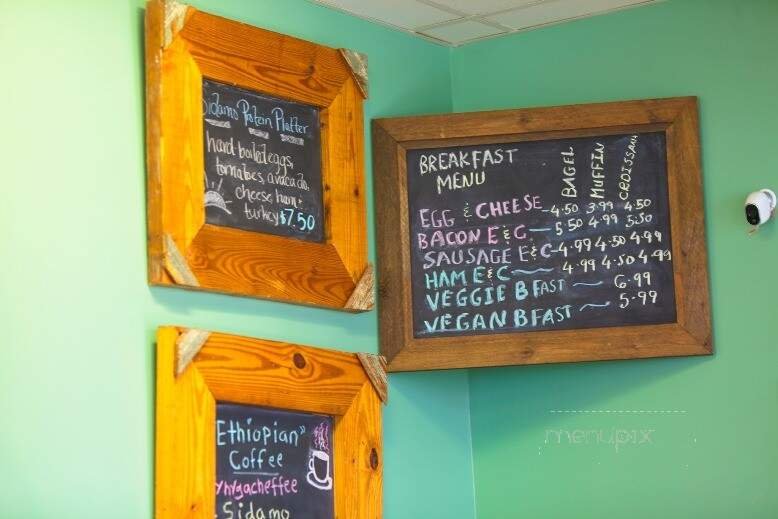 Sidamo Protein Platter
hard boiled eggs,
tomatoes, avacado,
cheese, ham &
turkey $7.50
BREAKFAST
MENU
BAGEL MUFFIN CROISSAN
EGG & CHEESE 4.50 3.99 4.50
BACON E & C 5.50 4.99 5.50
SAUSAGE E & C 4.99 4.50 4.99
HAM E & C 4.99 4.50 4.99
VEGGIE BFAST 6.99
VEGAN BFAST 5.99
Ethiopian"
Coffee
Yrygacheffee
Sidamo
menupix